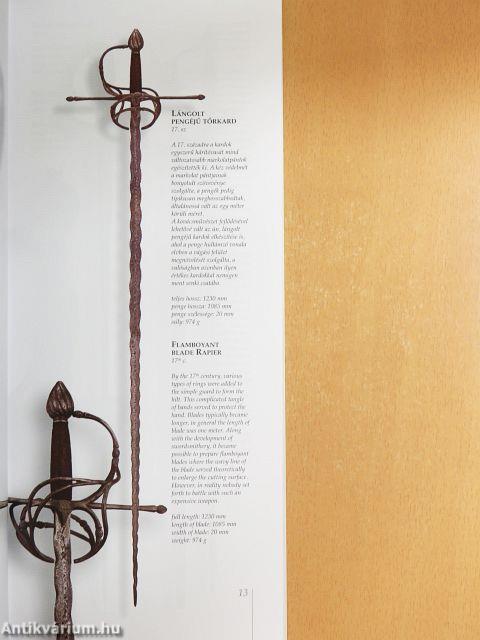 LÁNGOLT
PENGÉJŰ TŐRKARD
17. sz.
A 17. századra a kardok
egyszerű hárítóvasát mind
változatosabb markolatpántok
egészítették ki. A kéz védelmét
a markolat pántjainak
bonyolult szövevénye
szolgálta, a pengék pedig
tipikusan meghosszabbodtak,
általánossá vált az egy méter
körüli méret.
A kovácsművészet fejlődésével
lehetővé vált az ún. lángolt
pengéjű kardok elkészítése is,
ahol a penge hullámzó vonala
elvben a vágási felület
megnövelését szolgálta, a
valóságban azonban ilyen
értékes kardokkal nemigen
ment senki csatába.
teljes hossz: 1230 mm
penge hossza: 1085 mm
penge szélessége: 20 mm
súly: 974 g
FLAMBOYANT
BLADE RAPIER
17th c.
By the 17th century, various
types of rings were added to
the simple guard to form the
hilt. This complicated tangle
of bands served to protect the
hand. Blades typically became
longer, in general the length of
blade was one meter. Along
with the development of
swordsmithery, it became
possible to prepare flamboyant
blades where the wavy line of
the blade served theoretically
to enlarge the cutting surface.
However, in reality nobody set
forth to battle with such an
expensive weapon.
full length: 1230 mm
length of blade: 1085 mm
width of blade: 20 mm
weight: 974 g
13
Antikvárium.hu